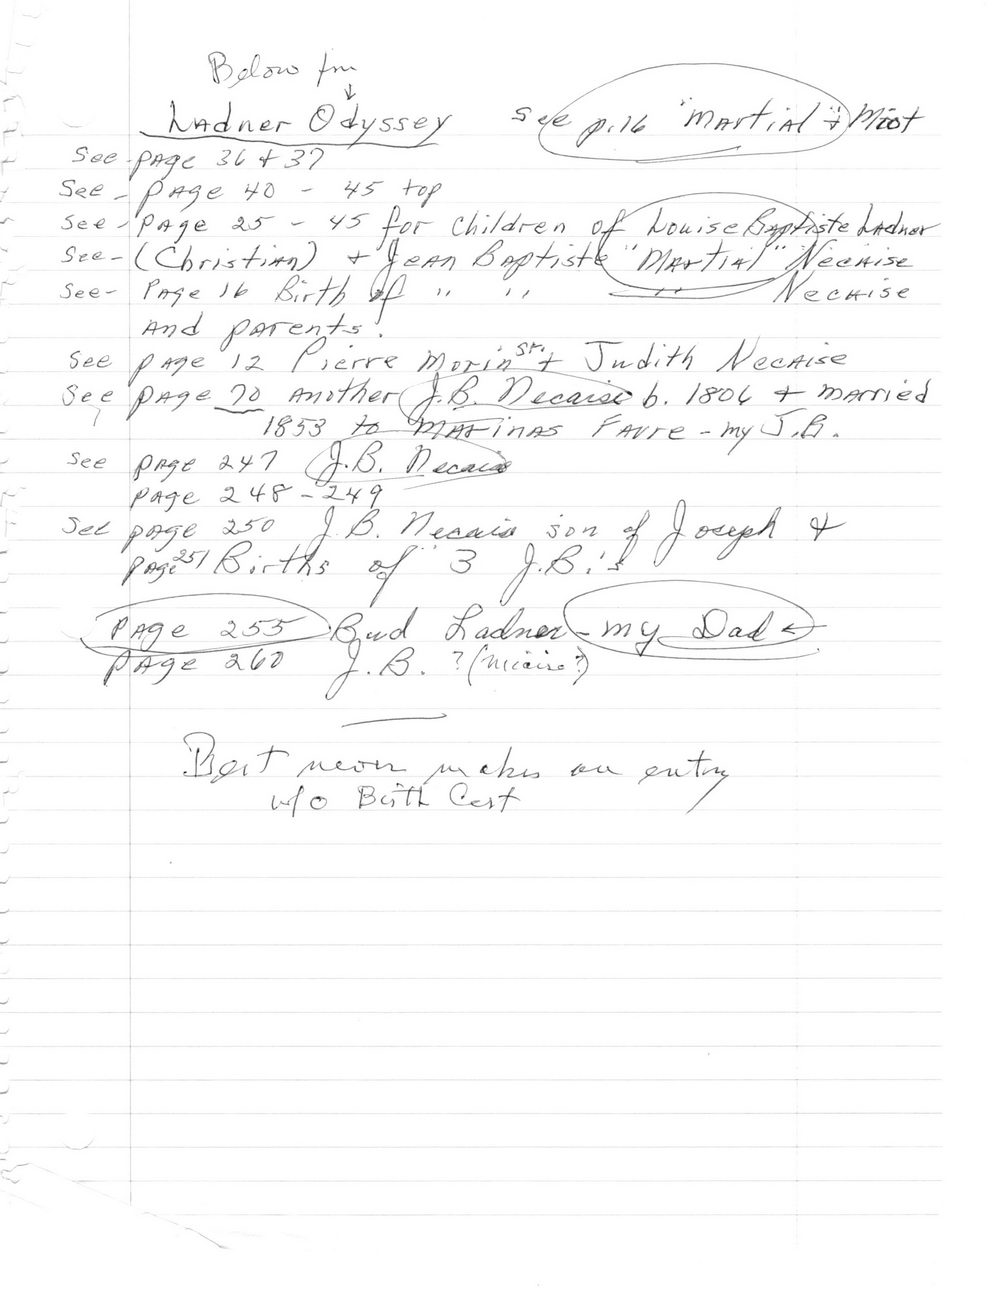 Below fm
Ladner Odyssey see p.16 "Martial" + Miot
See - page 36 + 37
See - page 40 - 45 top
See - page 25 - 45 for children of Louise Baptiste Ladner
See - (Christian) + Jean Baptiste "Martial" Necaise
See - Page 16 Birth of " " " Necaise
and parents.
See page 12 Pierre Morin Sr. + Judith Necaise
See page 70 another J.B. Necaise b. 1806 + married
1853 to Marinas Favre - my J.B.
See page 247 J.B. Necaise
page 248 - 249
See page 250 J.B. Necaise son of Joseph +
page 251 Births of 3 J.B.'s
Page 255 Bud Ladner - my Dad ←
Page 260 J.B. ? (Nicaise?)
Bert never makes an entry
w/o Birth Cert